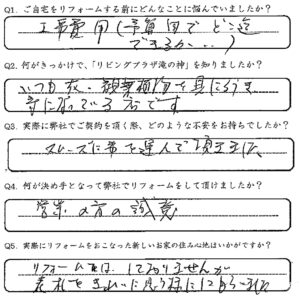 Q1. ご自宅をリフォームする前にどんなことに悩んでいましたか?
工事費用(予算内でどこ迄
できるか・・?)
Q2. 何がきっかけで、「リビングプラザ滝の神」を知りましたか?
いつも
行っている方です
Q3. 実際に弊社でご契約を頂く際、どのような不安をお持ちでしたか?
スムーズに事を運んで頂きました
Q4. 何が決め手となって弊社でリフォームをして頂けましたか?
営業の方の誠意
Q5. 実際にリフォームをおこなった新しいお家の住み心地はいかがですか?
リフォームでは、しておりませんが
きれいに